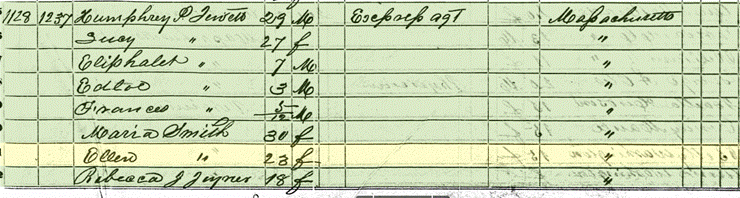 1128 1237 Humphrey P Jewett 29 M Express agt Massachusetts
Lucy " 27 f "
Eliphalet " 7 M "
Edw " 3 M "
Frances " 5/12 M "
Maria Smith 30 f "
Ellen " 23 f "
Rebecca J Joyner 18 f "